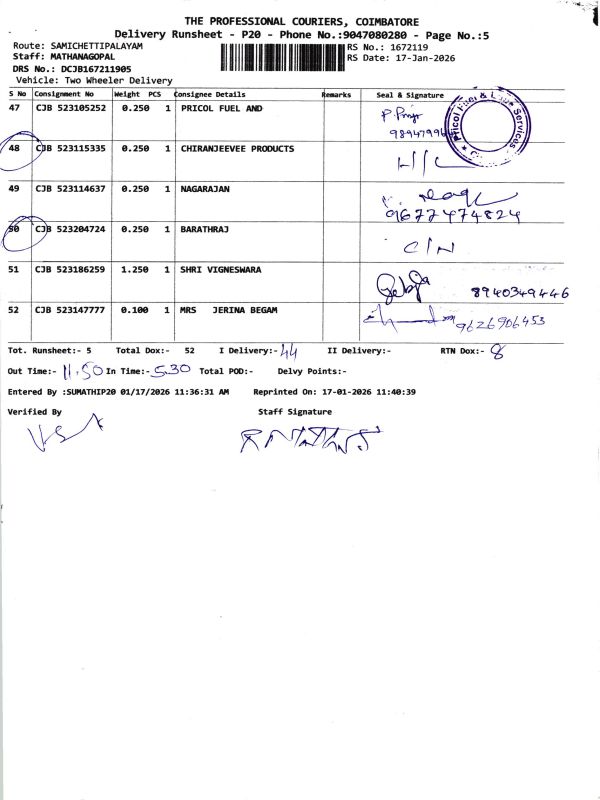 THE PROFESSIONAL COURIERS, COIMBATORE
Delivery Runsheet - P20 - Phone No.:9047080280 - Page No.:5
Route: SAMICHETTIPALAYAM RS No.: 1672119
Staff: MATHANAGOPAL RS Date: 17-Jan-2026
DRS No.: DCJB167211905
Vehicle: Two Wheeler Delivery
S No Consignment No Weight PCS Consignee Details Remarks Seal & Signature
47 CJB 523105252 0.250 1 PRICOL FUEL AND
48 CJB 523115335 0.250 1 CHIRANJEEVEE PRODUCTS
49 CJB 523114637 0.250 1 NAGARAJAN
9677474824
50 CJB 523204724 0.250 1 BARATHRAJ C/N
51 CJB 523186259 1.250 1 SHRI VIGNESWARA
8940349446
52 CJB 523147777 0.100 1 MRS JERINA BEGAM
9626906453
Tot. Runsheet:- 5 Total Dox:- 52 I Delivery:- 44 II Delivery:- RTN Dox:- 8
Out Time:- 11.50 In Time:- 5.30 Total POD:- Delvy Points:-
Entered By :SUMATHIP20 01/17/2026 11:36:31 AM Reprinted On: 17-01-2026 11:40:39
Verified By Staff Signature